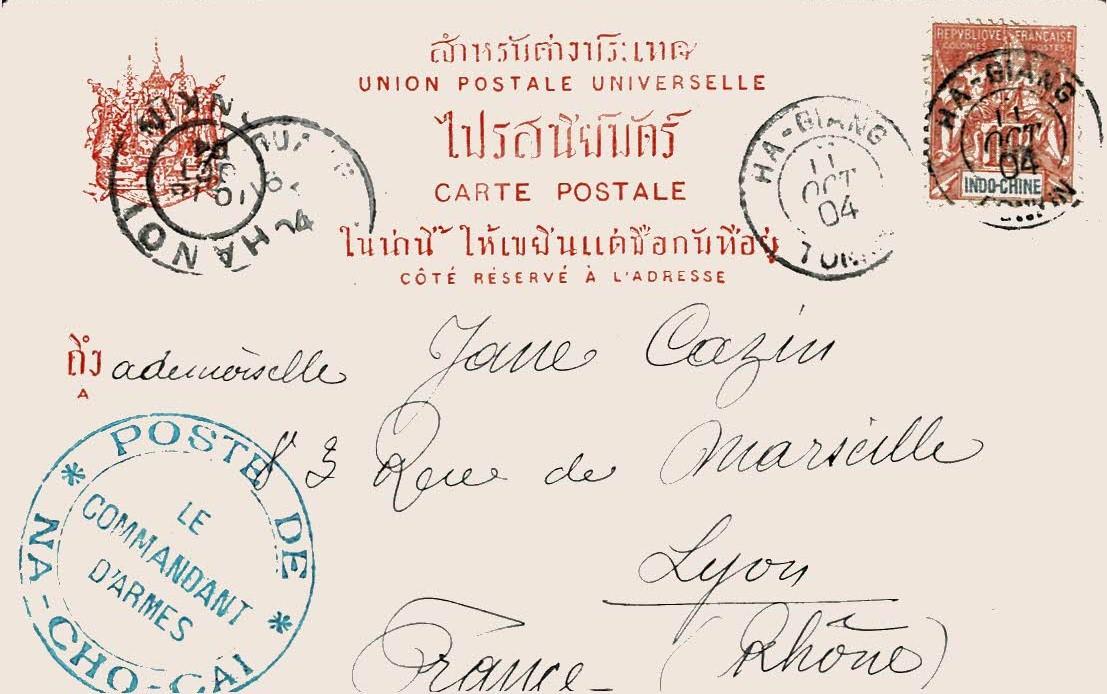 สำหรับต่างประเทศ
UNION POSTALE UNIVERSELLE
ไปรสนียบัตร์
CARTE POSTALE
ในน่านี้ ให้เขยีนแต่ชื่อกับที่อยู่
CÔTÉ RÉSERVÉ À L'ADRESSE
REPVBLIQVE FRANÇAISE
COLONIES POSTES
INDO-CHINE
HA-GIANG
11
OCT
04
TONKIN
HA-GIANG
11
OCT
04
HANOI
ถึง
A
ademoiselle Jane Cazin
83 Rue de Marseille
Lyon
France (Rhône)
POSTE DE
NA-CHO-CAI
LE
COMMANDANT
D'ARMES